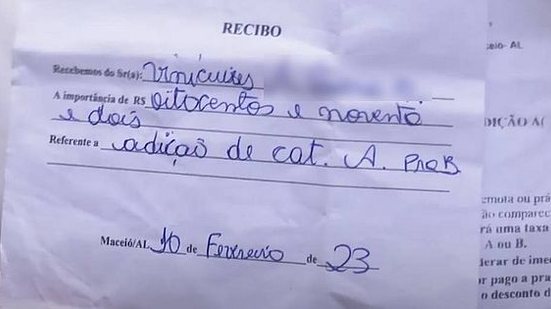 RECIBO
Recebemos do Sr(a): Vinicuises
A importância de R$ oitocentos e noventa
e dois
Referente a adição de cat. A. PROB
Maceió/AL, 10 de Fevereiro de 23
ceio- AL
DIÇÃO A(
emota ou prá
ão comparec
rá uma taxa
A ou B.
derar de imed
or pago a pra
o desconto d